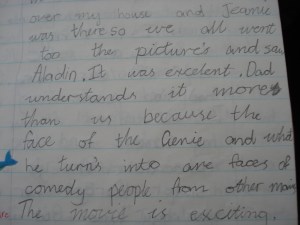 over my house and Jeanie
was there so we all went
too the picture's and saw
Aladin. It was excelent. Dad
understands it more
than us because the
face of the Genie and what
he turn's into are faces of
comedy people from other
The movie is esciting.